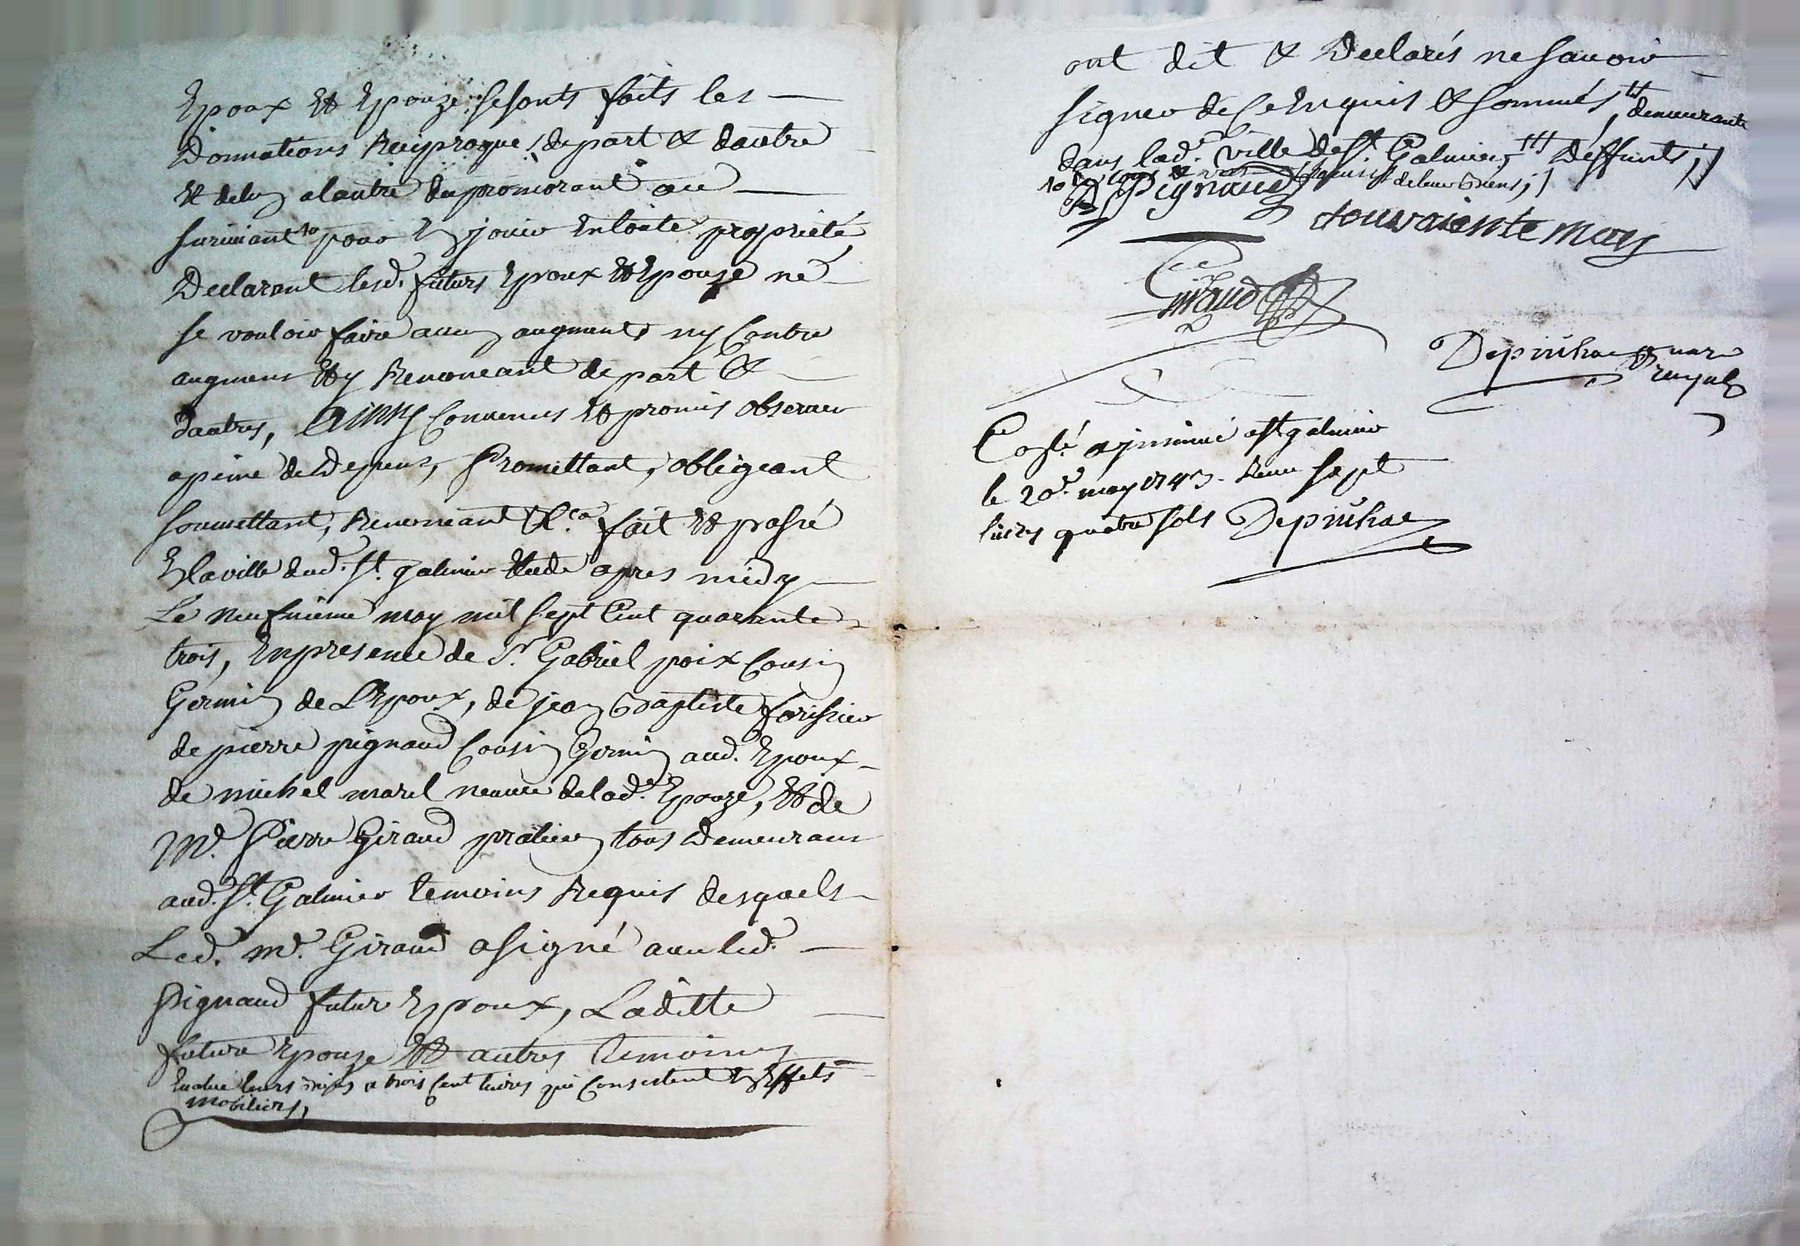 Epoux et Epouze se sont faits les
Donnations Reciproques de part & dautre
et delun alautre du premourant au
survivant pour En jouir Entoute propriété
Declarant lesd. futurs Epoux et Epouze ne
se vouloir faire aucun augment ny Contre
augment et y Renonceant de part &
dautres, Ainsy Convenus et promis observer
apeine de Depens, Promettant, obligeant
soumettant, Renonceant &c.a fait et passé
En laville dud. St. galmier Etude apres midy
Le neufvieme may mil sept Cent quarante
trois, Enpresence de Sr. Gabriel poix Cousin
Germain de LEpoux, de jean Baptiste forissier
de pierre pignaud Cousin Germain aud. Epoux
de michel marel neaveu delad.e Epouze, et de
Me. Pierre Giraud praticien tous Demeurans
aud. St. Galmier temoins Requis desquels
Led. Me. Giraud asigné avec led.
Pignaud futur Epoux, Laditte
future Epouze et autres temoins
Evalué leurs biens a trois Cent livres qui Consistent En Effets
mobiliers,
ont dit & Declarés ne savoir
signer de Ce Enquis & sommés, demeurante
dans lad.e ville de St. Galmier, Deffunts,
de leur biens,
Pignaud
Giraud
Depiuhac no.re royal
Con.lé ajnsinué a St galmier
le 20e. may 1743. Receu sept
livres quatre sols Depiuhac